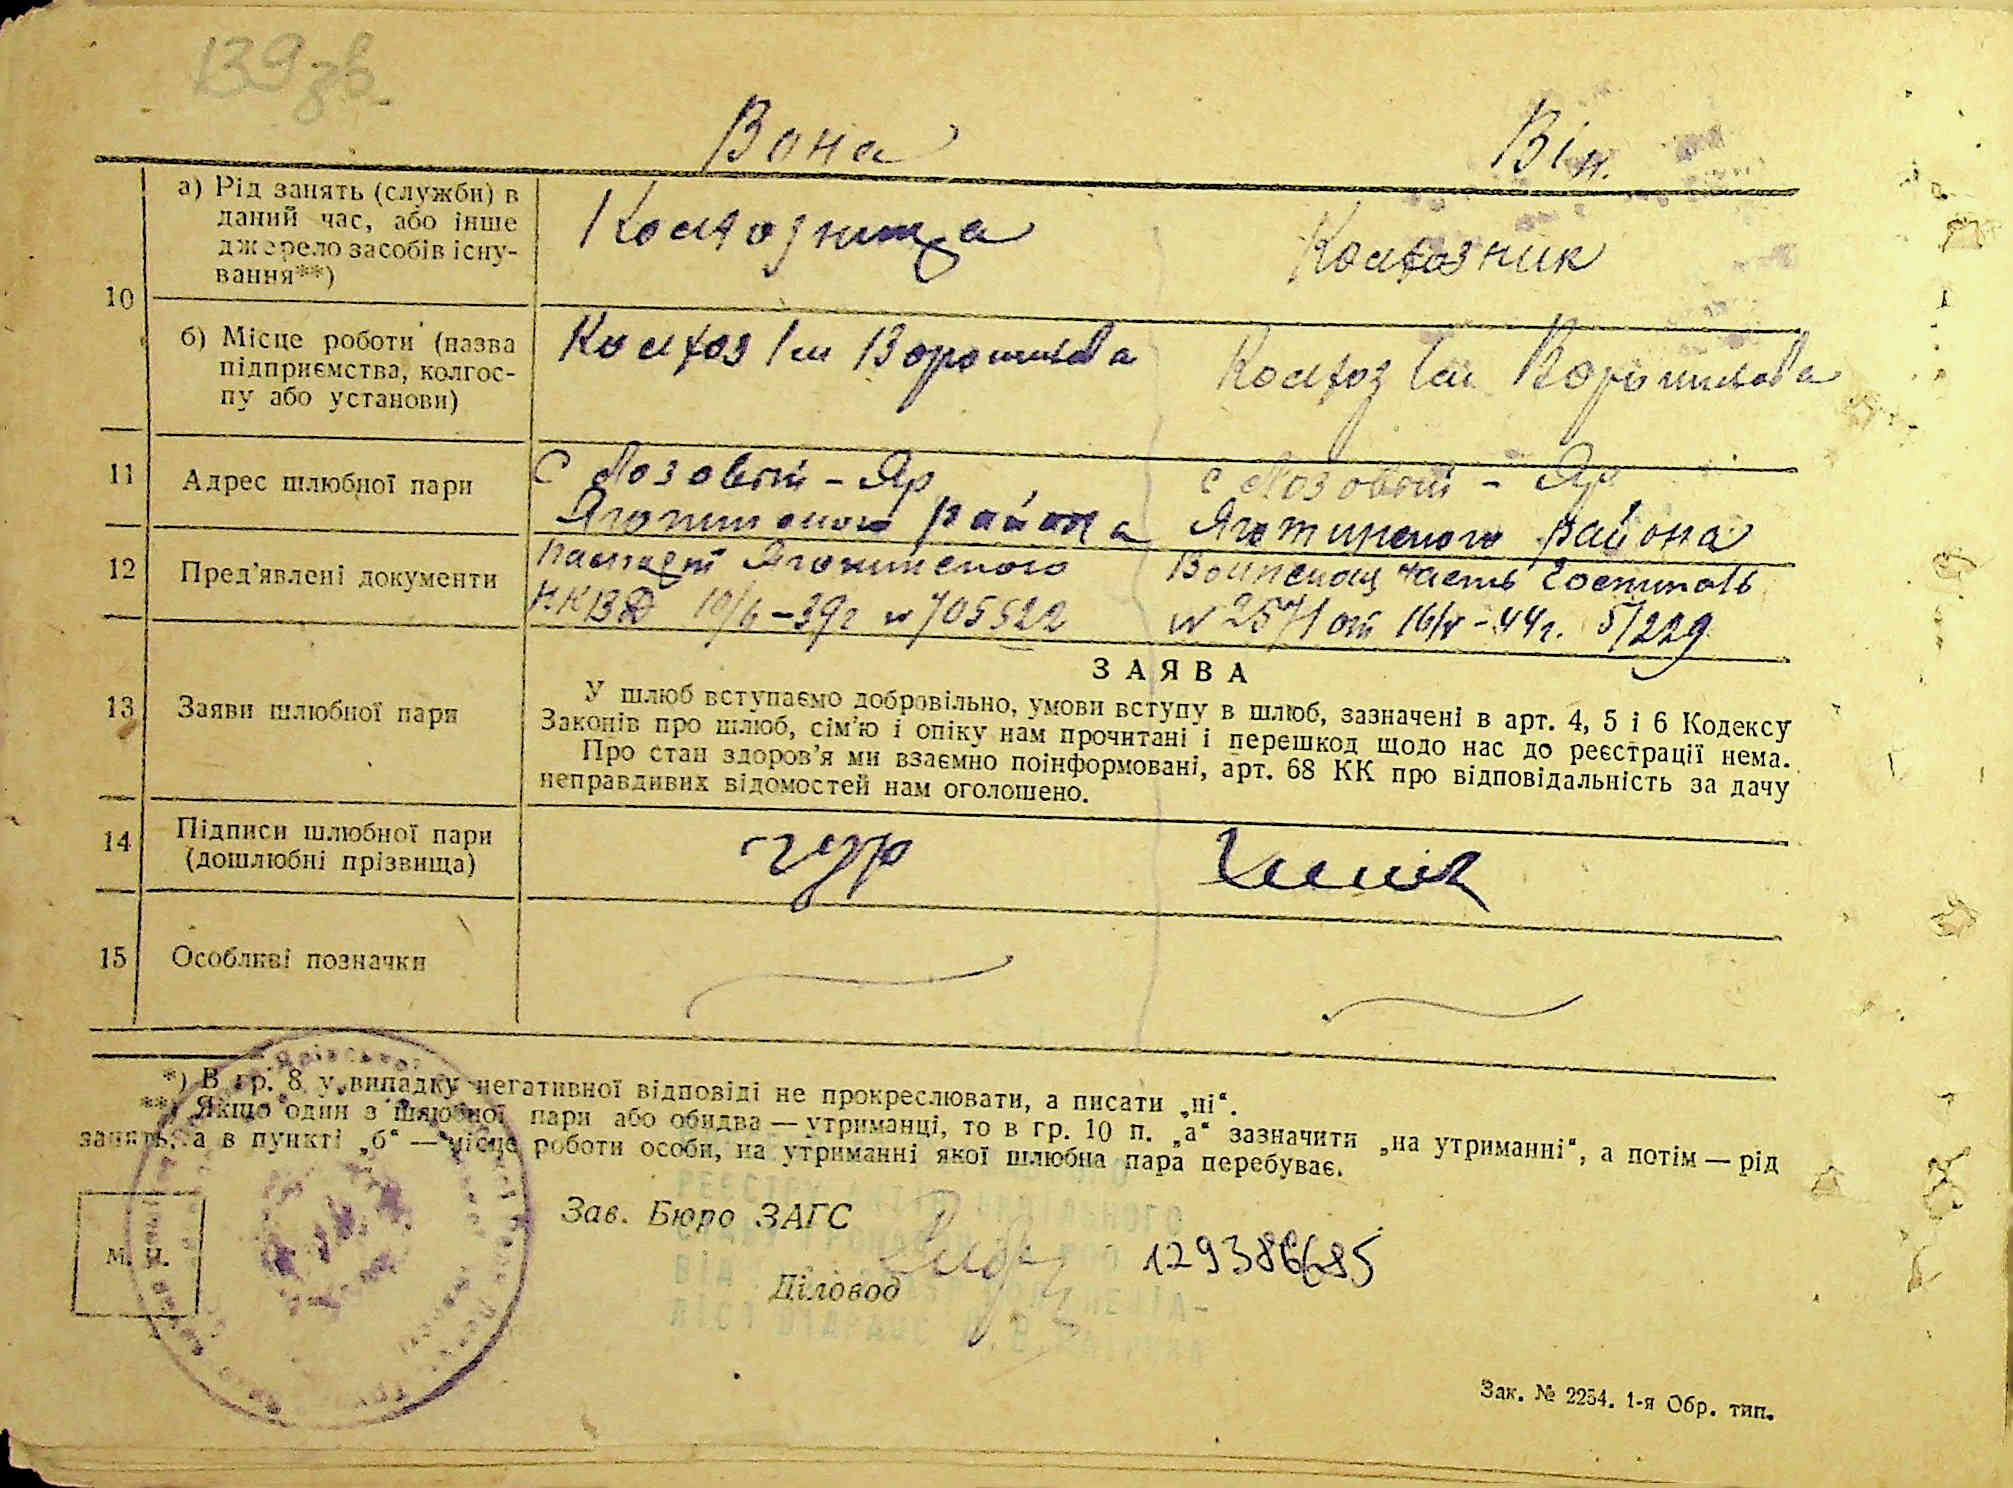 139 зв.
Вона Він.
10
а) Рід занять (служби) в
даний час, або інше
джерело засобів існу-
вання**)
Колхозница Колхозник
б) Місце роботи (назва
підприємства, колгос-
пу або установи)
Колхоз Им Ворошилова Колхоз Им Ворошилова
11 Адрес шлюбної пари
с Лозовой-Яр с Лозовой - Яр
Яготинского района Яготинского района
12 Пред'явлені документи
паспорт Яготинского Воинская часть Госпиталь
НКВД 10/6-39г № 705522 № 2571 от 16/V-44г. 5/229
13 Заяви шлюбної пари
ЗАЯВА
У шлюб вступаємо добровільно, умови вступу в шлюб, зазначені в арт. 4, 5 і 6 Кодексу
Законів про шлюб, сім'ю і опіку нам прочитані і перешкод щодо нас до реєстрації нема.
Про стан здоров'я ми взаємно поінформовані, арт. 68 КК про відповідальність за дачу
неправдивих відомостей нам оголошено.
14 Підписи шлюбної пари
(дошлюбні прізвища)
15 Особливі позначки
*) В гр. 8 у випадку негативної відповіді не прокреслювати, а писати „ні“.
**) Якщо один з шлюбної пари або обидва — утриманці, то в гр. 10 п. „а“ зазначити „на утриманні“, а потім — рід
занять, а в пункті „б“ — місце роботи особи, на утриманні якої шлюбна пара перебуває.
Зав. Бюро ЗАГС
М. П.
Діловод
Зак. № 2254. 1-я Обр. тип.